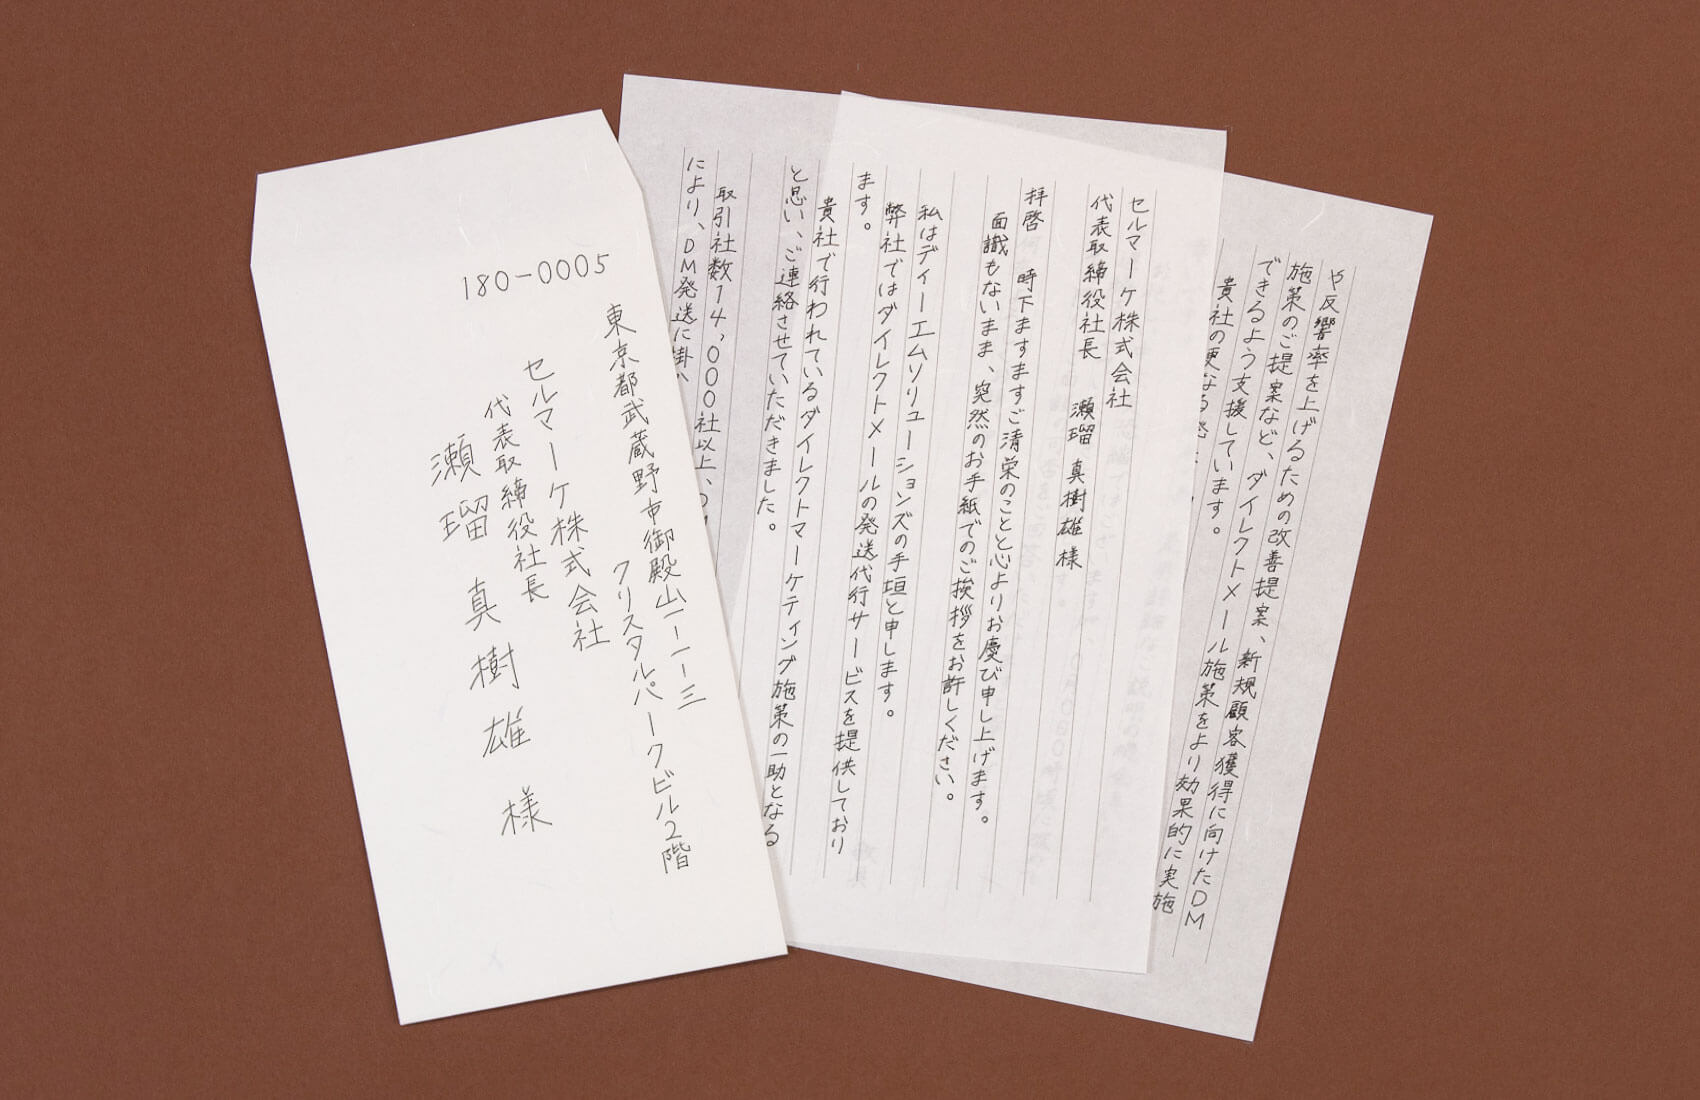 180-0005
東京都武蔵野市御殿山一ー一ー三
クリスタルパークビル2階
セルマーケ株式会社
代表取締役社長
瀬瑠 真樹雄 様
セルマーケ株式会社
代表取締役社長 瀬瑠 真樹雄 様
拝啓 時下ますますご清栄のことと心よりお慶び申し上げます。
面識もないまま、突然のお手紙でのご挨拶をお許しください。
私はディーエムソリューションズの手垣と申します。
弊社ではダイレクトメールの発送代行サービスを提供しており
ます。
貴社で行われているダイレクトマーケティング施策の一助となる
と思い、ご連絡させていただきました。
取引社数14,000社以上、
により、DM発送に掛
や反響率を上げるための改善提案、新規顧客獲得に向けたDM
施策のご提案など、ダイレクトメール施策をより効果的に実施
できるよう支援しています。
貴社の更なる発